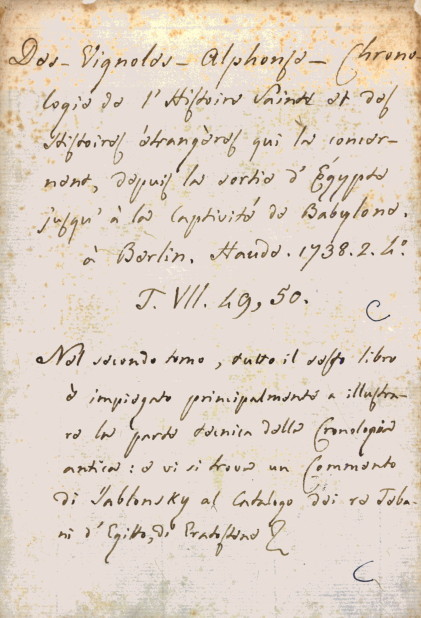 Des-Vignoles-Alphonse-Chrono-
logie de l'Histoire Sainte et des
Histoires étrangères qui la concer-
nent, depuis la sortie d'Égypte
jusqu'à la Captivité de Babylone.
à Berlin. Haude. 1738. 2. 4°.
T. VII. 49, 50.
C
Nel secondo tomo, tutto il sesto libro
è impiegato principalmente a illustra-
re la parte tecnica della Cronologia
antica: e vi si trova un Commento
di Jablonsky al Catalogo dei re Teba-
ni d'Egitto, di Eratostene
C